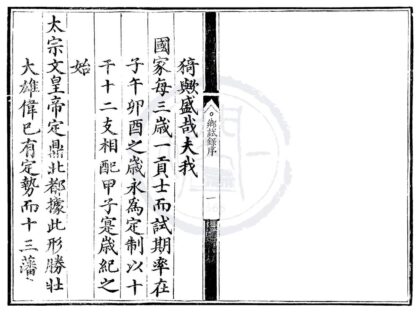 鄉試錄序
一
猗歟盛哉夫我
國家每三歲一貢士而試期率在
子午卯酉之歲永為定制以十
干十二支相配甲子寔歲紀之
始
太宗文皇帝定鼎北都據此形勝壯
大雄偉已有定勢而十三藩